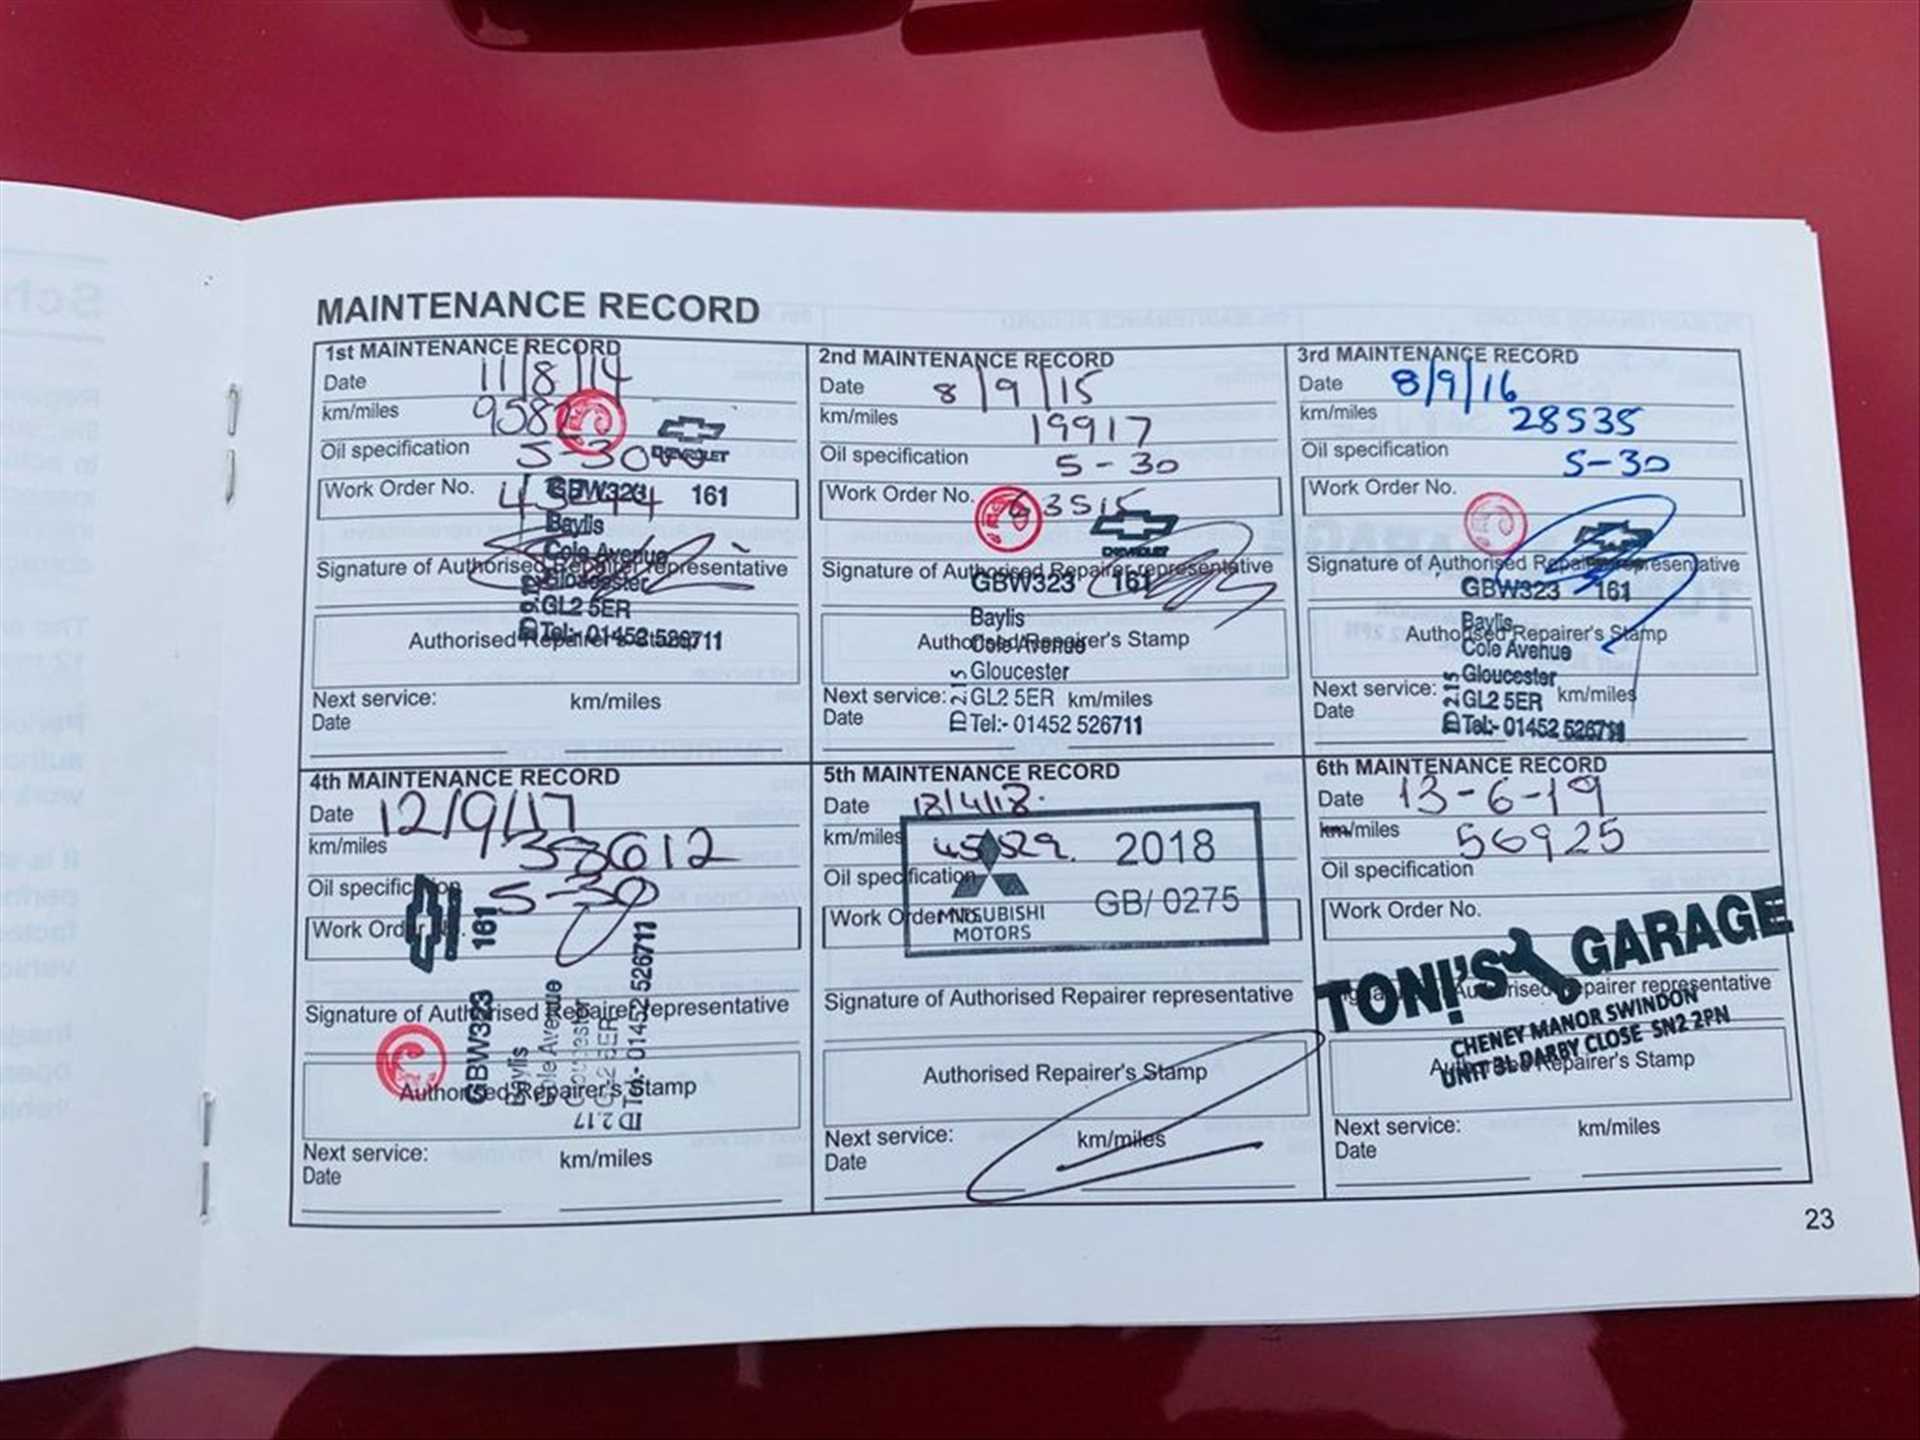 MAINTENANCE RECORD
1st MAINTENANCE RECORD
Date 11/8/14
km/miles 9582
Oil specification 5-30
CHEVROLET
Work Order No.
GBW323 161
Baylis
Cole Avenue
Signature of Authorised Repairer representative
Gloucester
GL2 5ER
Tel:- 01452 526711
Authorised Repairer's Stamp
Next service: km/miles
Date
2nd MAINTENANCE RECORD
Date 8/9/15
km/miles 19917
Oil specification 5-30
Work Order No. 63515
CHEVROLET
Signature of Authorised Repairer representative
GBW323 161
Baylis
Authorised Repairer's Stamp
Cole Avenue
Gloucester
Next service: GL2 5ER km/miles
Date
ID 2.15 Tel:- 01452 526711
3rd MAINTENANCE RECORD
Date 8/9/16
km/miles 28535
Oil specification 5-30
Work Order No.
Signature of Authorised Repairer representative
GBW323 161
Baylis
Authorised Repairer's Stamp
Cole Avenue
Gloucester
Next service: GL2 5ER km/miles
Date
ID 2.15 Tel:- 01452 526711
4th MAINTENANCE RECORD
Date 12/9/17
km/miles 38612
Oil specification 5-30
Work Order No.
Signature of Authorised Repairer representative
GBW323 161
Baylis
Cole Avenue
Gloucester
GL2 5ER
Tel:- 01452 526711
ID 2.17
Authorised Repairer's Stamp
Next service: km/miles
Date
5th MAINTENANCE RECORD
Date
km/miles 45529.
2018
Oil specification
GB/ 0275
Work Order No.
MITSUBISHI
MOTORS
Signature of Authorised Repairer representative
Authorised Repairer's Stamp
Next service: km/miles
Date
6th MAINTENANCE RECORD
Date 13-6-19
km/miles 56925
Oil specification
Work Order No.
TONI'S GARAGE
Signature of Authorised Repairer representative
CHENEY MANOR SWINDON
UNIT 3L DARBY CLOSE SN2 2PN
Authorised Repairer's Stamp
Next service: km/miles
Date
23